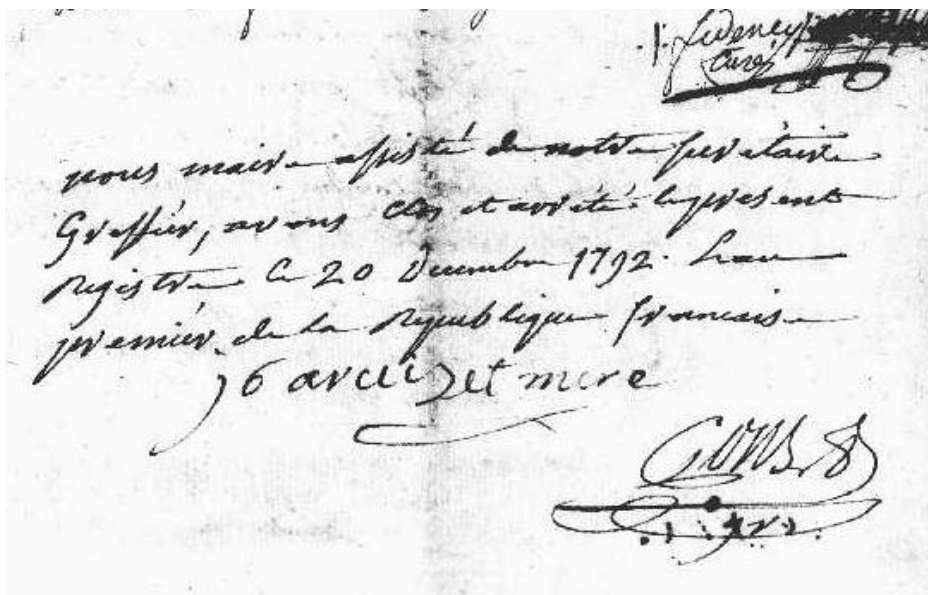 Curé
nous maire assisté de notre secrétaire
Greffier, avons clos et arrêté le present
Registre le 20 Decembre 1792. Lan
premier de la Republique francaise
et mere